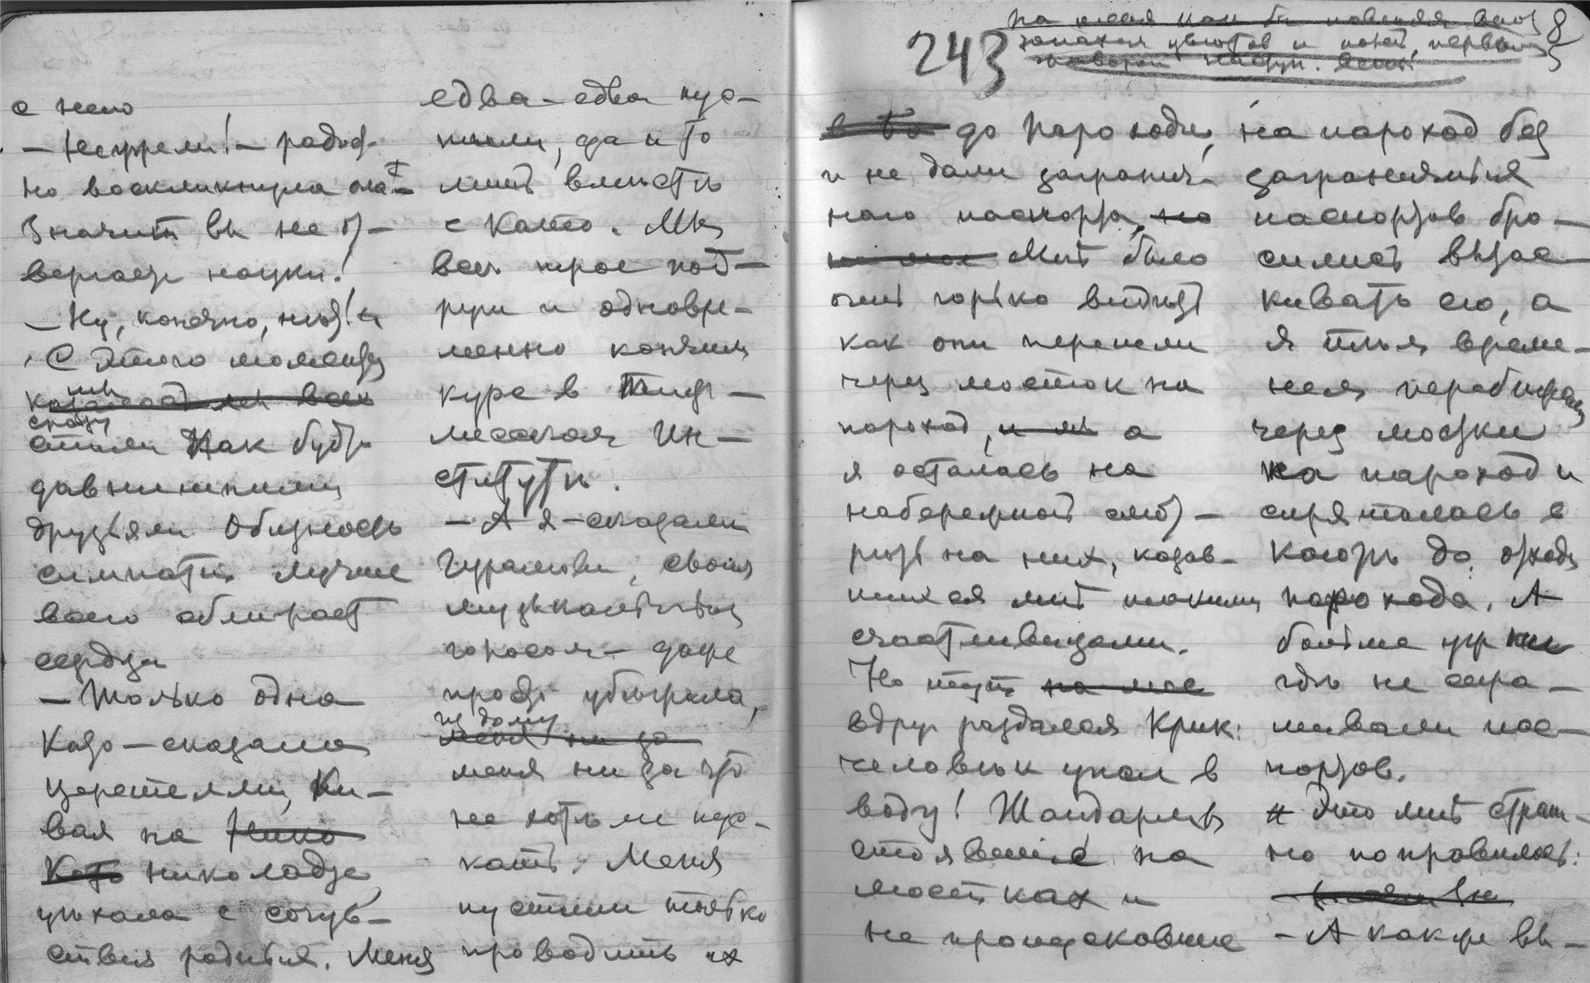 с нею
— Неужели! — радост-
но воскликнула она —
Значит вы не от-
вергаете науки!
— Ну, конечно, нет!
С этого момента
мы
сразу
стали как будто
давнишними
друзьями. Общность
симпатий лучше
всего сближает
сердца
— Только одна
Като — сказала
Церетелли, ки-
вая на Нико
Като Николадзе,
уехала с согла-
сия родителей. Меня
едва-едва пус-
тили, да и то
лишь вместе
с Като. Мы
все трое под-
руги и одновре-
менно кончили
курс в Тифл-
исском Ин-
ституте.
— А я — сказала
Гурамова, своим
музыкальным
голосом — даже
просто убежала,
из дому
меня ни за
меня ни за что
не хотели пус-
кать. Меня
пустили только
проводить их
243
8
на меня как бы повеяло
запахом цветов и полей, первый
до парохода,
и не дали загранич-
ного паспорта, но
Мне было
очень горько видеть
как они перешли
через мосток на
пароход, а
я осталась на
набережной смот-
реть на них, казав-
шихся мне такими
счастливицами.
Но тут на мое
вдруг раздался крик:
человек упал в
воду! Жандармы
стоявшие на
мостках и
не пропускавшие
на пароход без
заграничных
паспортов бро-
сились вытас-
кивать его, а
я тем време-
нем перебежала
через мостки
на пароход и
спряталась в
каюте до отхода
парохода. А
больше уж ни
где не спра-
шивали пас-
портов.
Это мне страш-
но понравилось:
— А как же вы —